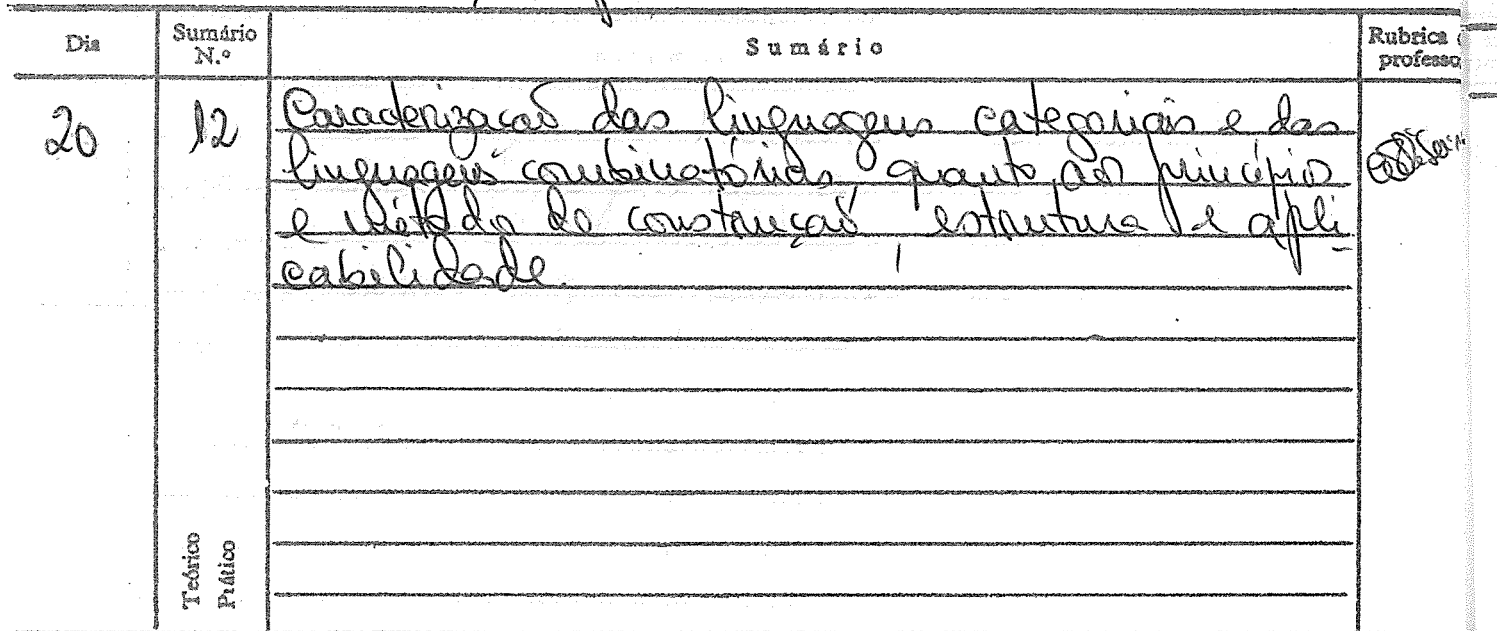 Dia Sumário N.º Sumário Rubrica professo
20 12 Caracterização das linguagens categoriais e das
linguagens combinatórias quanto ao princípio
e método de construção, estrutura e apli-
cabilidade.
Teórico
Prático